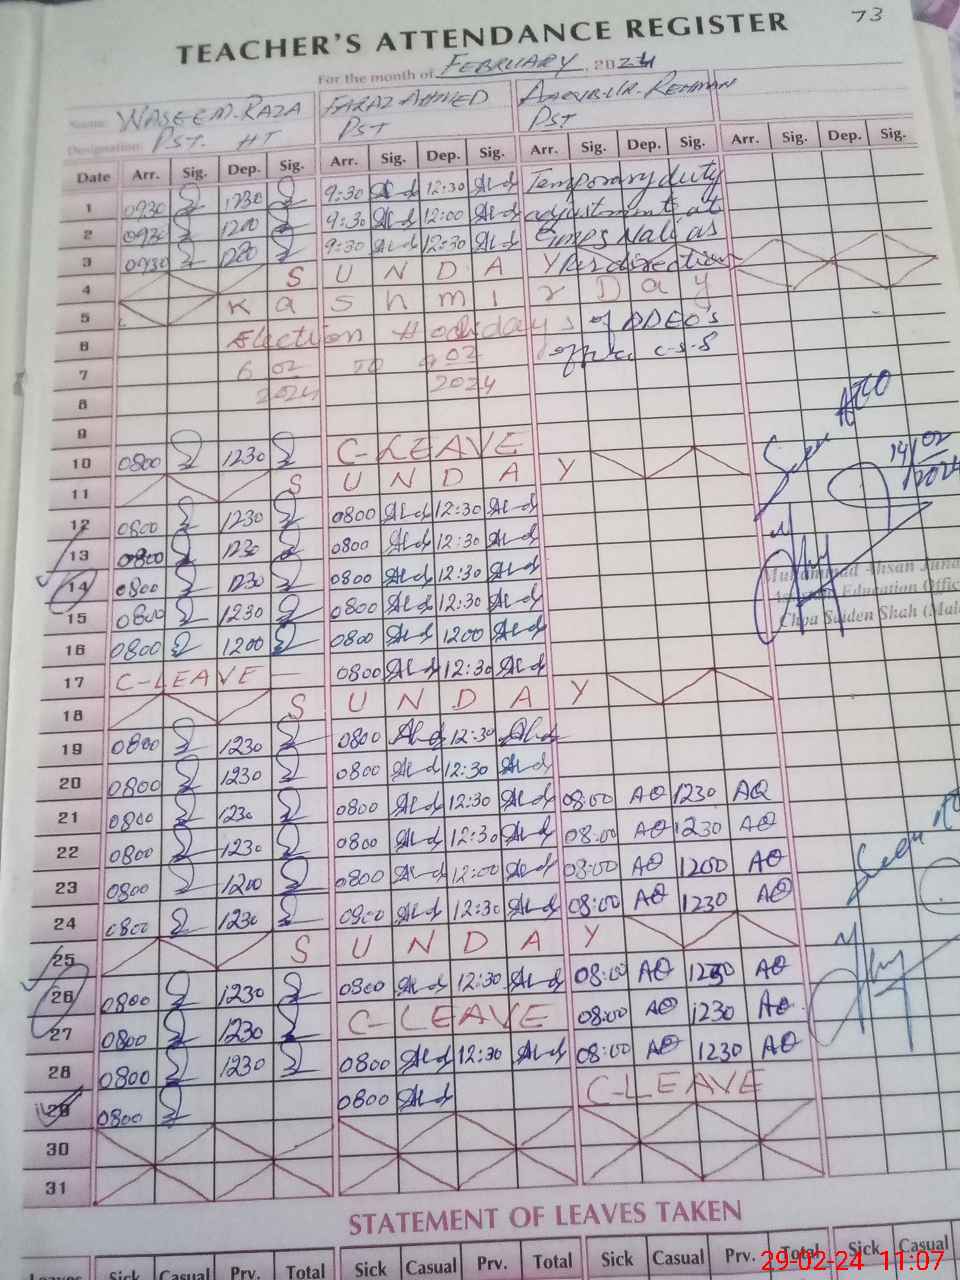 73
TEACHER'S ATTENDANCE REGISTER
For the month of FEBRUARY, 2024
Name: WASEEM-RAZA FARAZ AHMED AAQIB-UR-REHMAN
Designation: PST. HT PST PST
Date Arr. Sig. Dep. Sig. Arr. Sig. Dep. Sig. Arr. Sig. Dep. Sig. Arr. Sig. Dep. Sig.
1 0930 1230 9:30 12:30 Temporary duty
2 0930 1200 9:30 12:00 adjustment at
3 0930 1230 9:30 12:30 Gmps Nali as
4 S U N D A Y Per direction
5 K a s h m i r D a y
6 Election Holidays of DDEO's
7 6 02 2024 TO 9 02 2024 office C-S-S
8
9
10 0800 1230 C-LEAVE
11 S U N D A Y
12 0800 1230 0800 12:30
13 0800 1230 0800 12:30
14 0800 1230 0800 12:30
15 0800 1230 0800 12:30
16 0800 1200 0800 1200
17 C-LEAVE 0800 12:30
18 S U N D A Y
19 0800 1230 0800 12:30
20 0800 1230 0800 12:30
21 0800 1230 0800 12:30 08:00 1230
22 0800 1230 0800 12:30 08:00 1230
23 0800 1200 0800 12:00 08:00 1200
24 0800 1230 0800 12:30 08:00 1230
25 S U N D A Y
26 0800 1230 0800 12:30 08:00 1230
27 0800 1230 C-LEAVE 08:00 1230
28 0800 1230 0800 12:30 08:00 1230
29 0800 0800 C-LEAVE
30
31
14/02/2024
Muhammad Ahsan
Education Offic
Choa Saiden Shah
STATEMENT OF LEAVES TAKEN
Leaves Sick Casual Prv. Total Sick Casual Prv. Total Sick Casual Prv. Total Sick Casual
29-02-24 11:07